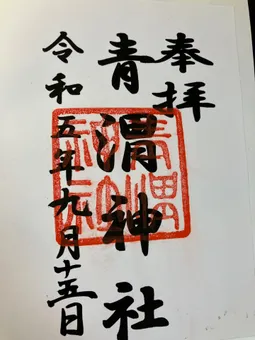 奉拝
青渭神社
令和五年九月十五日
青渭
神社